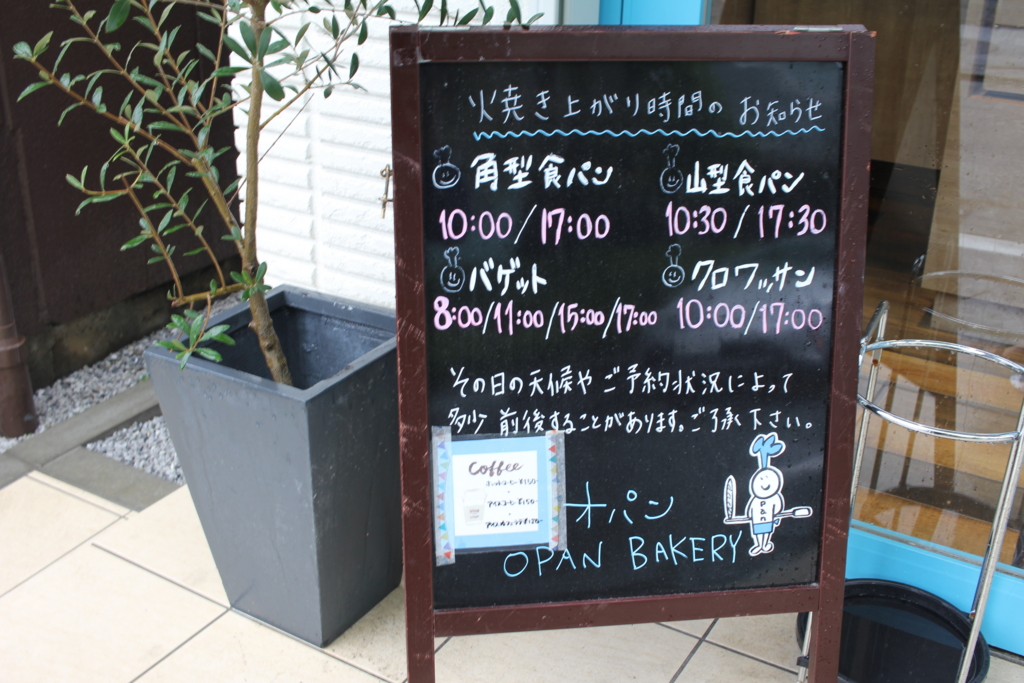 焼き上がり時間の お知らせ
角型食パン
10:00/17:00
山型食パン
10:30/17:30
バゲット
8:00/11:00/15:00/17:00
クロワッサン
10:00/17:00
その日の天候や ご予約状況によって
多少 前後することがあります。ご了承 下さい。
Coffee
ホットコーヒー ¥150-
アイスコーヒー ¥150-
オパン
OPAN BAKERY
Pan